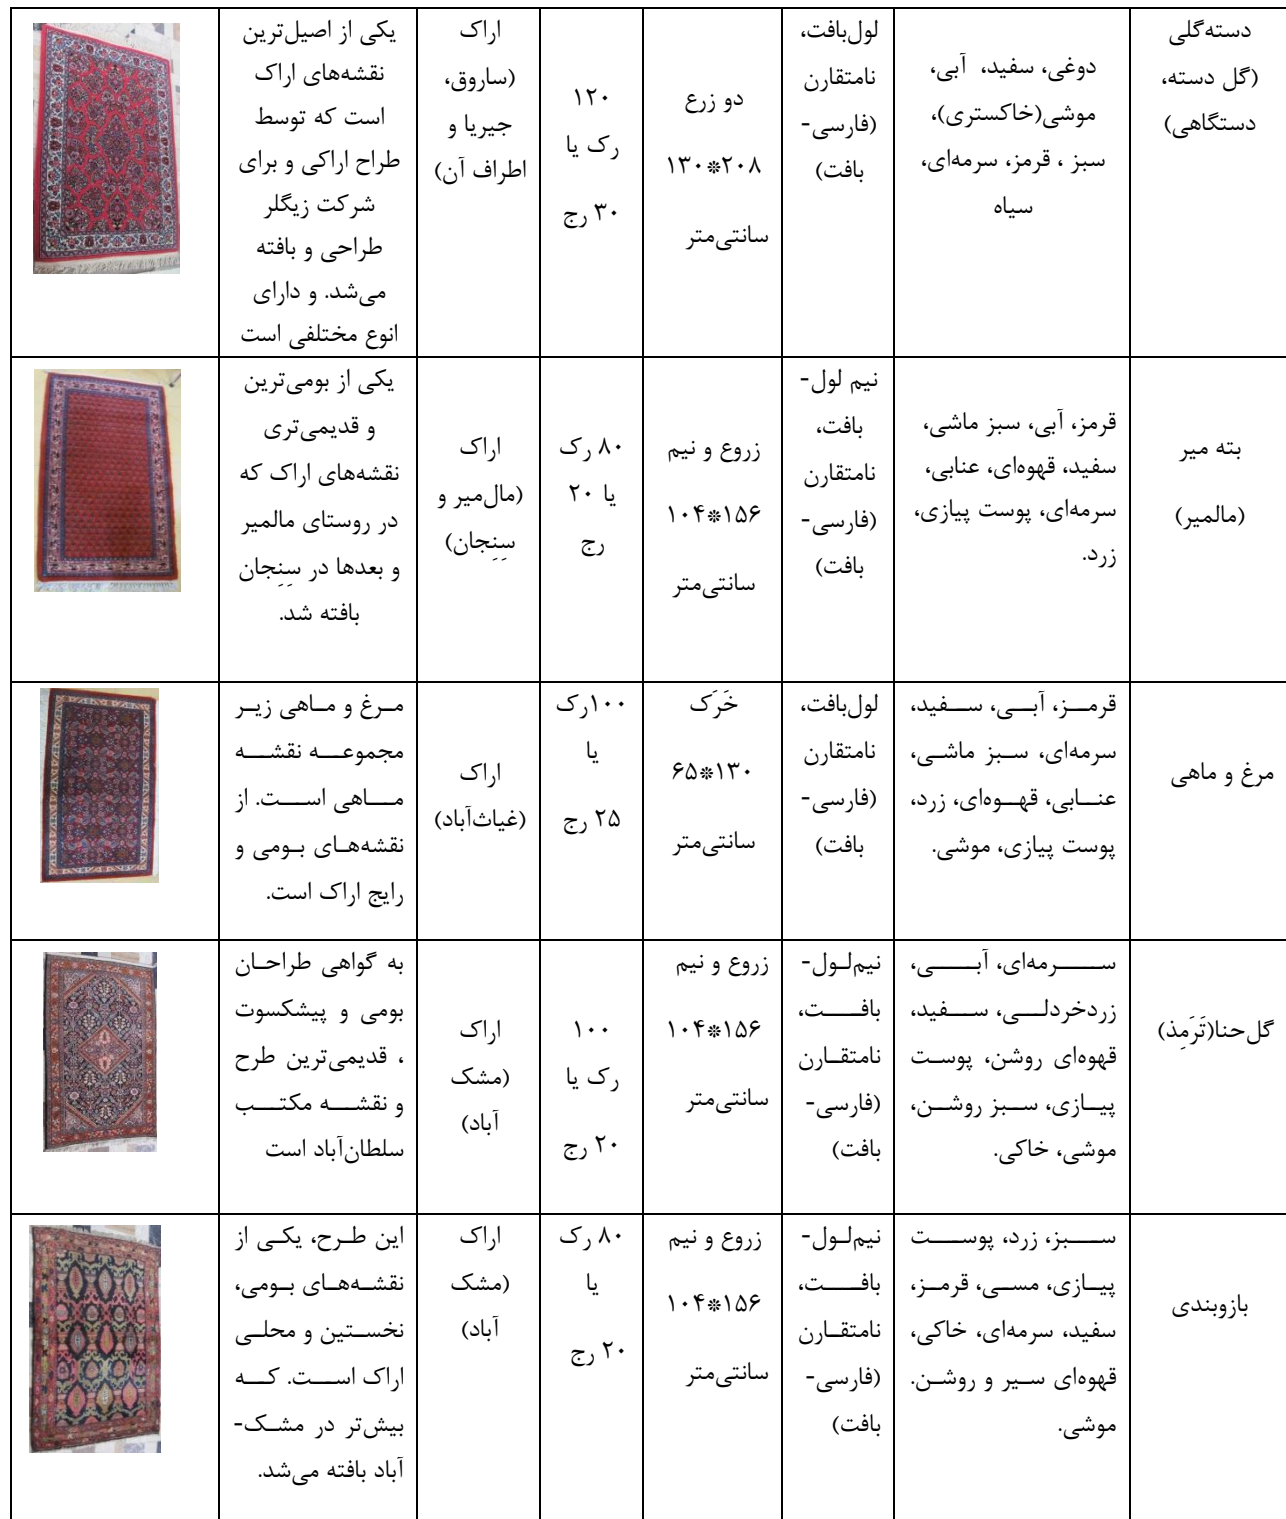 دسته‌گلی
(گل دسته،
دستگاهی)
دوغی، سفید، آبی،
موشی(خاکستری)،
سبز ، قرمز، سرمه‌ای،
سیاه
لول‌بافت،
نامتقارن
(فارسی-
بافت)
دو زرع
۱۳۰*۲۰۸
سانتی‌متر
۱۲۰
رک یا
۳۰ رج
اراک
(ساروق،
جیریا و
اطراف آن)
یکی از اصیل‌ترین
نقشه‌های اراک
است که توسط
طراح اراکی و برای
شرکت زیگلر
طراحی و بافته
می‌شد. و دارای
انوع مختلفی است
بته میر
(مالمیر)
قرمز، آبی، سبز ماشی،
سفید، قهوه‌ای، عنابی،
سرمه‌ای، پوست پیازی،
زرد.
نیم لول-
بافت،
نامتقارن
(فارسی-
بافت)
زروع و نیم
۱۰۴*۱۵۶
سانتی‌متر
۸۰ رک
یا ۲۰
رج
اراک
(مال‌میر و
سِنِجان)
یکی از بومی‌ترین
و قدیمی‌تری
نقشه‌های اراک که
در روستای مالمیر
و بعدها در سِنِجان
بافته شد.
مرغ و ماهی
قرمز، آبی، سفید،
سرمه‌ای، سبز ماشی،
عنابی، قهوه‌ای، زرد،
پوست پیازی، موشی.
لول‌بافت،
نامتقارن
(فارسی-
بافت)
خَرَک
۶۵*۱۳۰
سانتی‌متر
۱۰۰رک
یا
۲۵ رج
اراک
(غیاث‌آباد)
مرغ و ماهی زیر
مجموعه نقشه
ماهی است. از
نقشه‌های بومی و
رایج اراک است.
گل‌حنا(تَرَمِذ)
سرمه‌ای، آبی،
زردخردلی، سفید،
قهوه‌ای روشن، پوست
پیازی، سبز روشن،
موشی، خاکی.
نیم‌لول-
بافت،
نامتقارن
(فارسی-
بافت)
زروع و نیم
۱۰۴*۱۵۶
سانتی‌متر
۱۰۰
رک یا
۲۰ رج
اراک
(مشک
آباد)
به گواهی طراحان
بومی و پیشکسوت
، قدیمی‌ترین طرح
و نقشه مکتب
سلطان‌آباد است
بازوبندی
سبز، زرد، پوست
پیازی، مسی، قرمز،
سفید، سرمه‌ای، خاکی،
قهوه‌ای سیر و روشن.
موشی.
نیم‌لول-
بافت،
نامتقارن
(فارسی-
بافت)
زروع و نیم
۱۰۴*۱۵۶
سانتی‌متر
۸۰ رک
یا
۲۰ رج
اراک
(مشک
آباد)
این طرح، یکی از
نقشه‌های بومی،
نخستین و محلی
اراک است. که
بیش‌تر در مشک-
آباد بافته می‌شد.